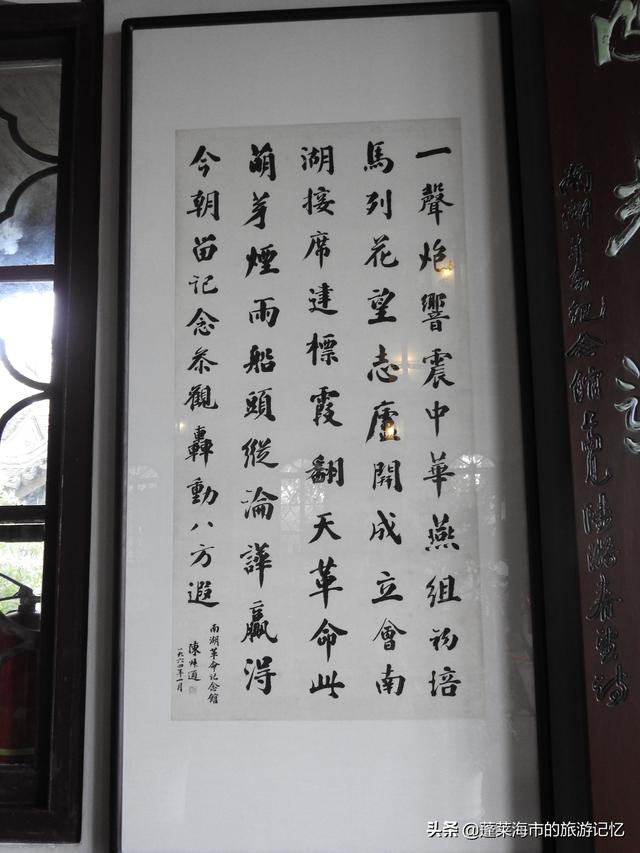 一聲炮響震中華燕組初培
馬列花望志廬開成立會南
湖接席建標霞翻天革命此
萌芽煙雨船頭縱論譁贏得
今朝留記念參觀轟動八方遐
南湖革命记念館
陳叔通
一九六四年一月
南湖革命紀念館
头条 @蓬莱海市的旅游记忆